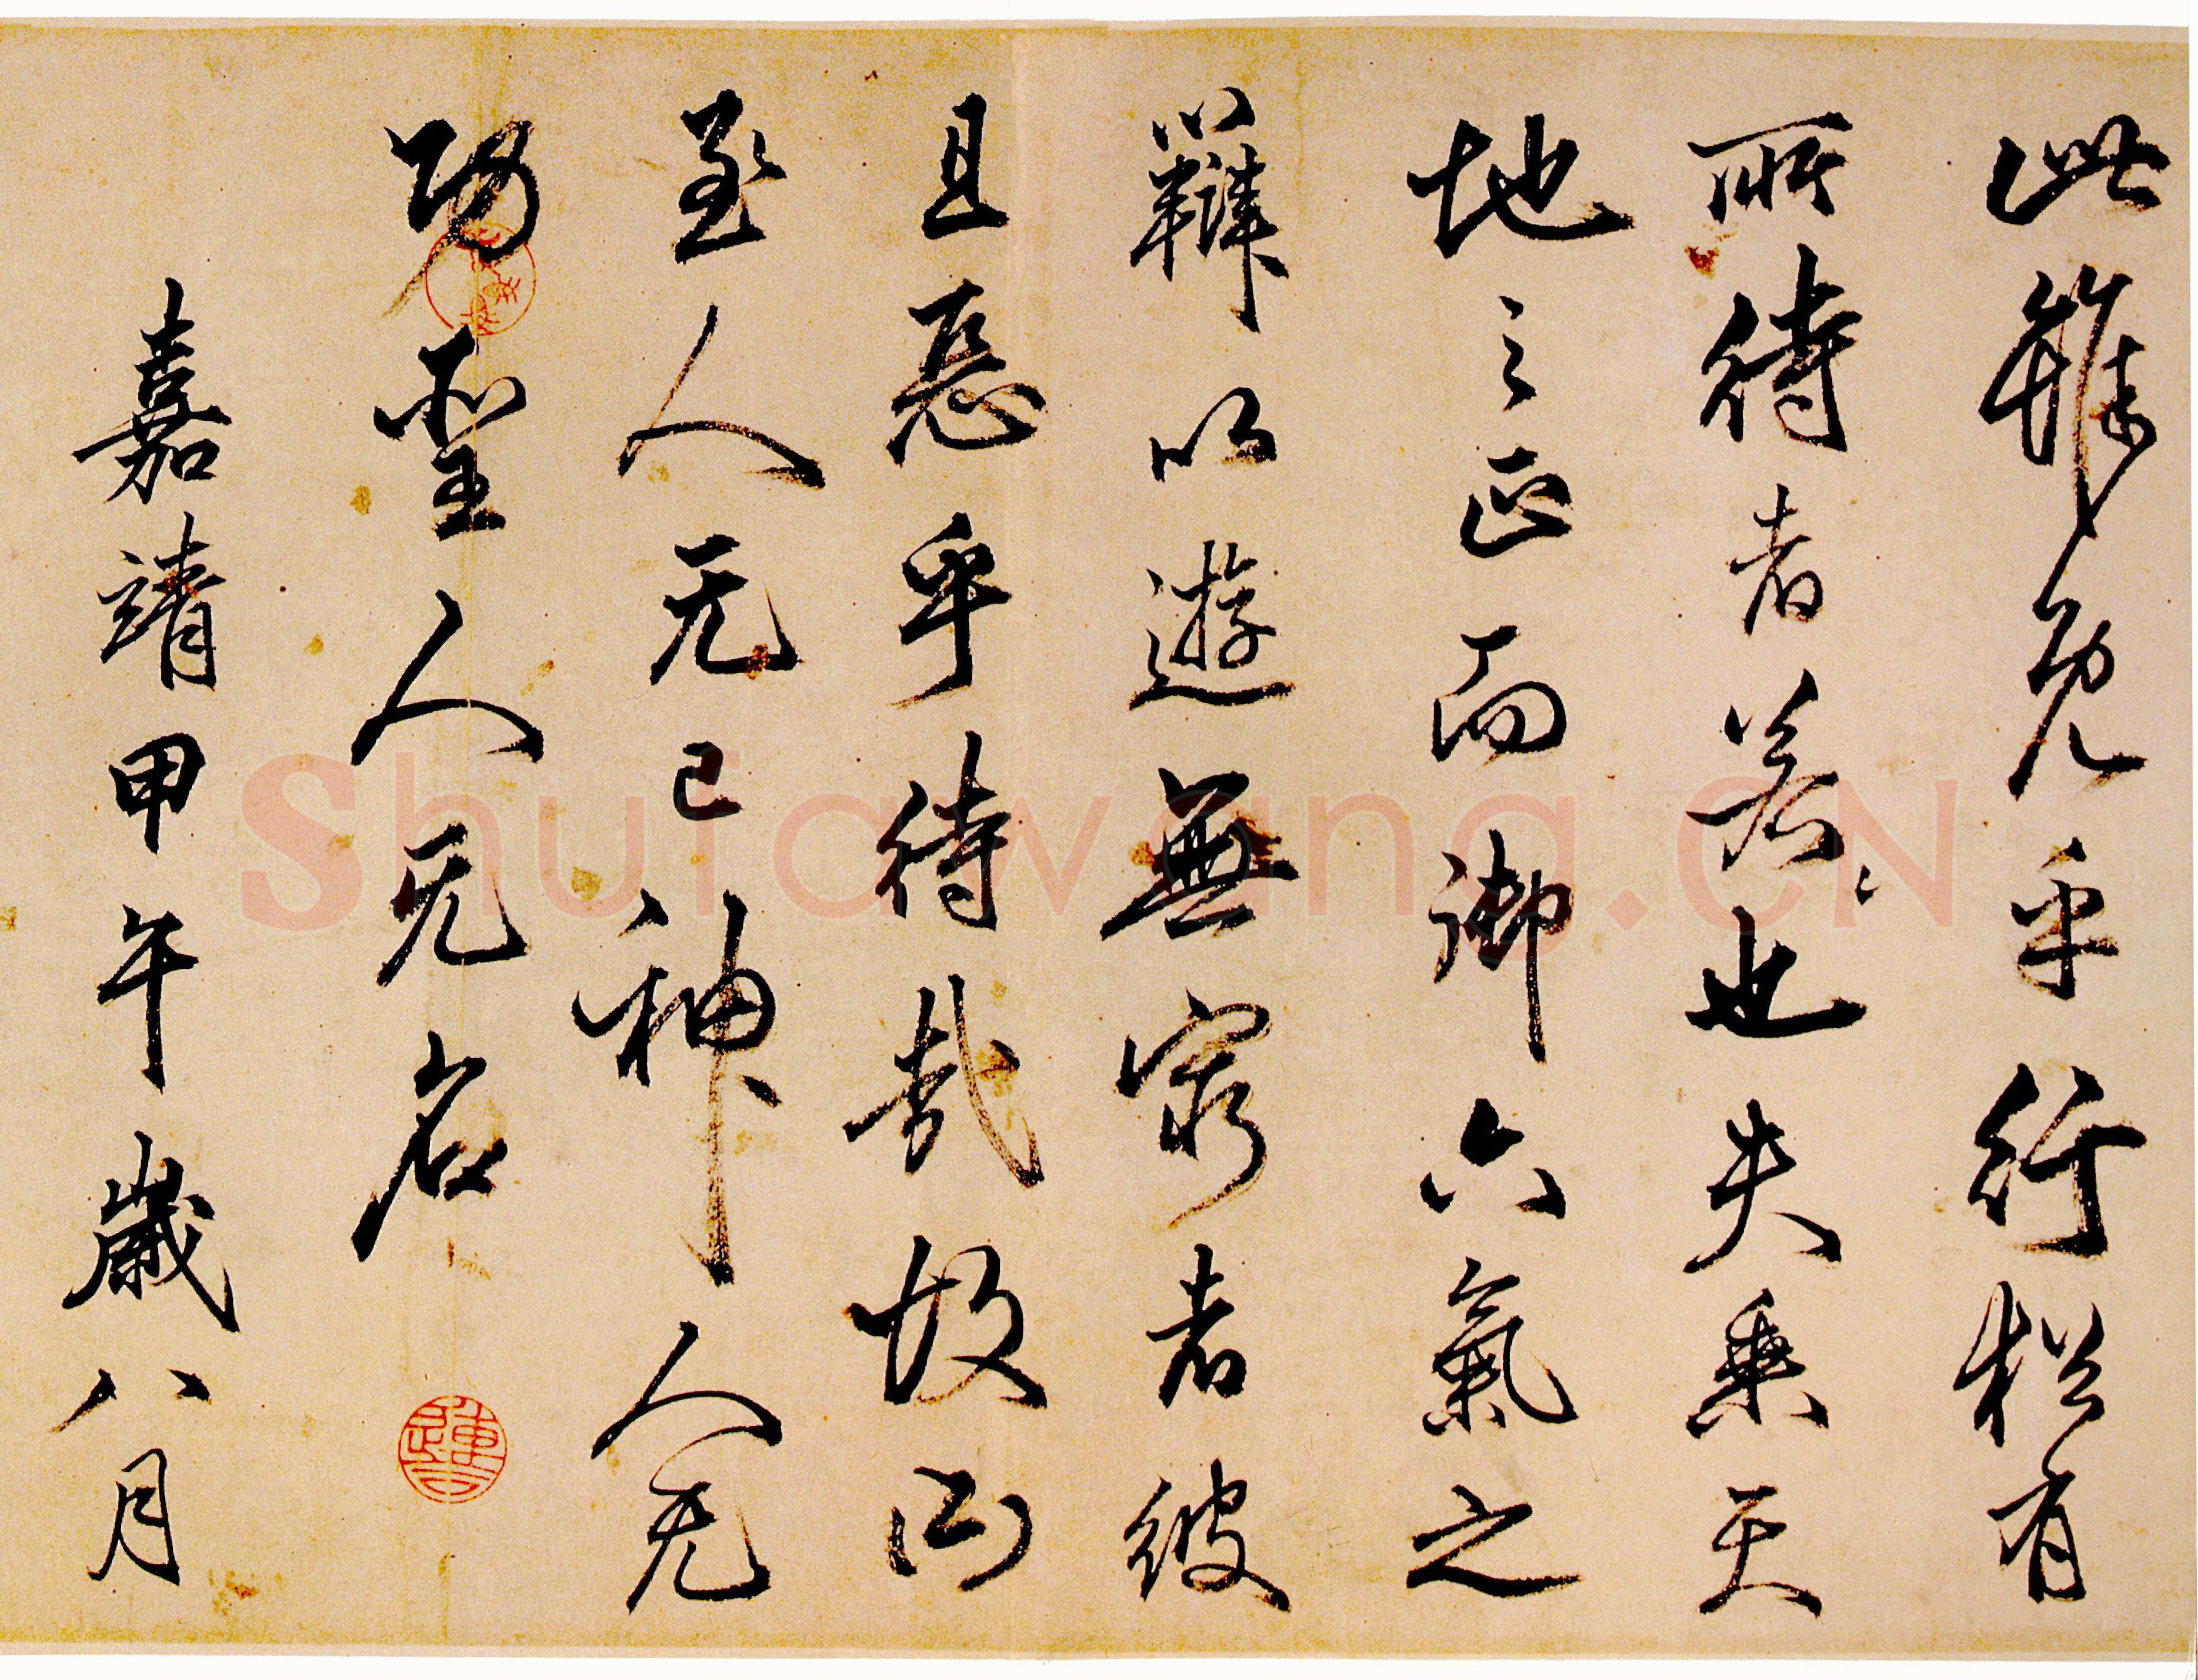 此雖免乎行猶有
所待者若也夫乘天
地之正而御六氣之
辯以遊無窮者彼
且惡乎待哉故曰
至人无己神人无
功聖人无名
嘉靖甲午歲八月
Shufawang.CN